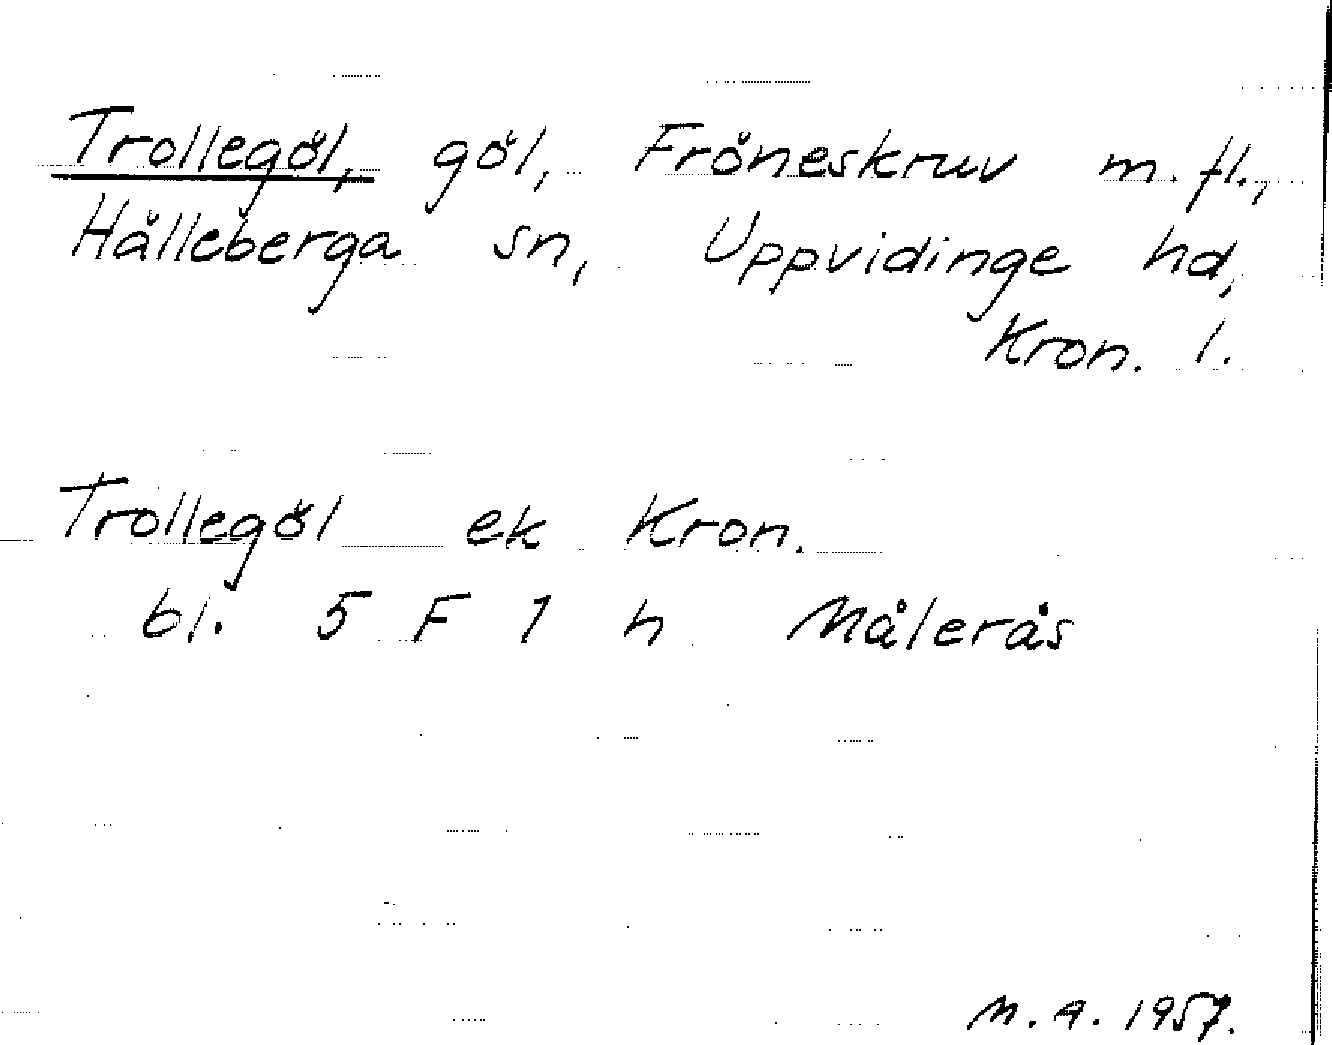 Trollegöl, göl, Fröneskruv m. fl.,
Hälleberga sn, Uppvidinge hd,
Kron. l.
Trollegöl ek Kron.
bl. 5 F 1 h Målerås
M. A. 1957.